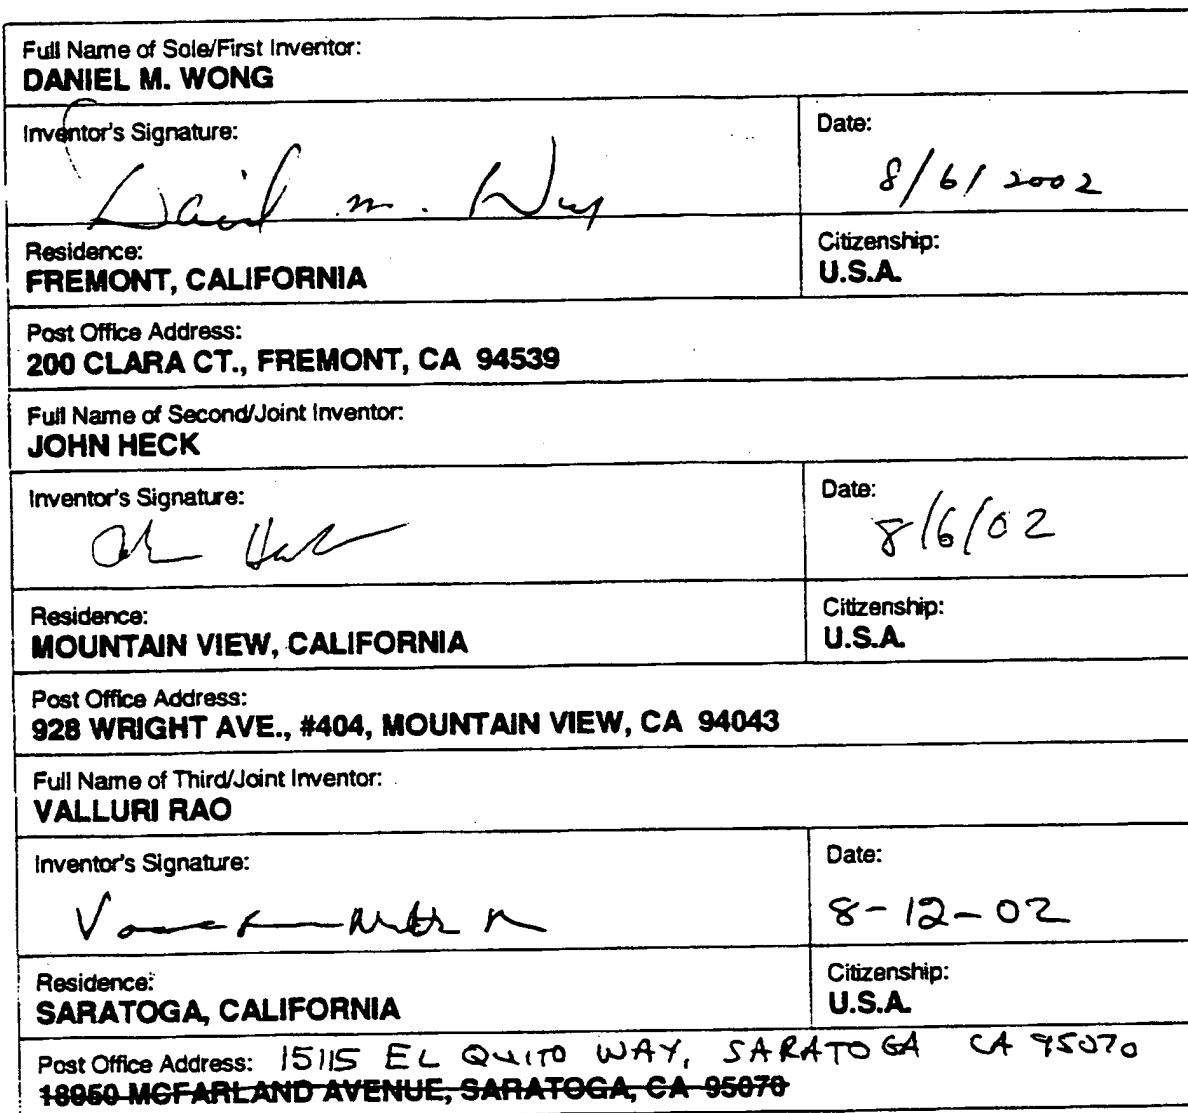 Full Name of Sole/First Inventor:
DANIEL M. WONG
Inventor's Signature:
Daniel m. Wong
Date:
8/6/2002
Residence:
FREMONT, CALIFORNIA
Citizenship:
U.S.A.
Post Office Address:
200 CLARA CT., FREMONT, CA 94539
Full Name of Second/Joint Inventor:
JOHN HECK
Inventor's Signature:
John Heck
Date:
8/6/02
Residence:
MOUNTAIN VIEW, CALIFORNIA
Citizenship:
U.S.A.
Post Office Address:
928 WRIGHT AVE., #404, MOUNTAIN VIEW, CA 94043
Full Name of Third/Joint Inventor:
VALLURI RAO
Inventor's Signature:
Date:
8-12-02
Residence:
SARATOGA, CALIFORNIA
Citizenship:
U.S.A.
Post Office Address: 15115 EL QUITO WAY, SARATOGA CA 95070
18950 MCFARLAND AVENUE, SARATOGA, CA 95070